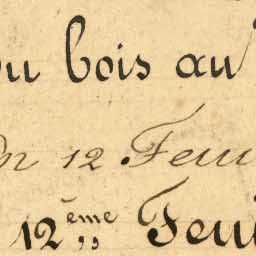 bois au
12 Feui
12ème Feui